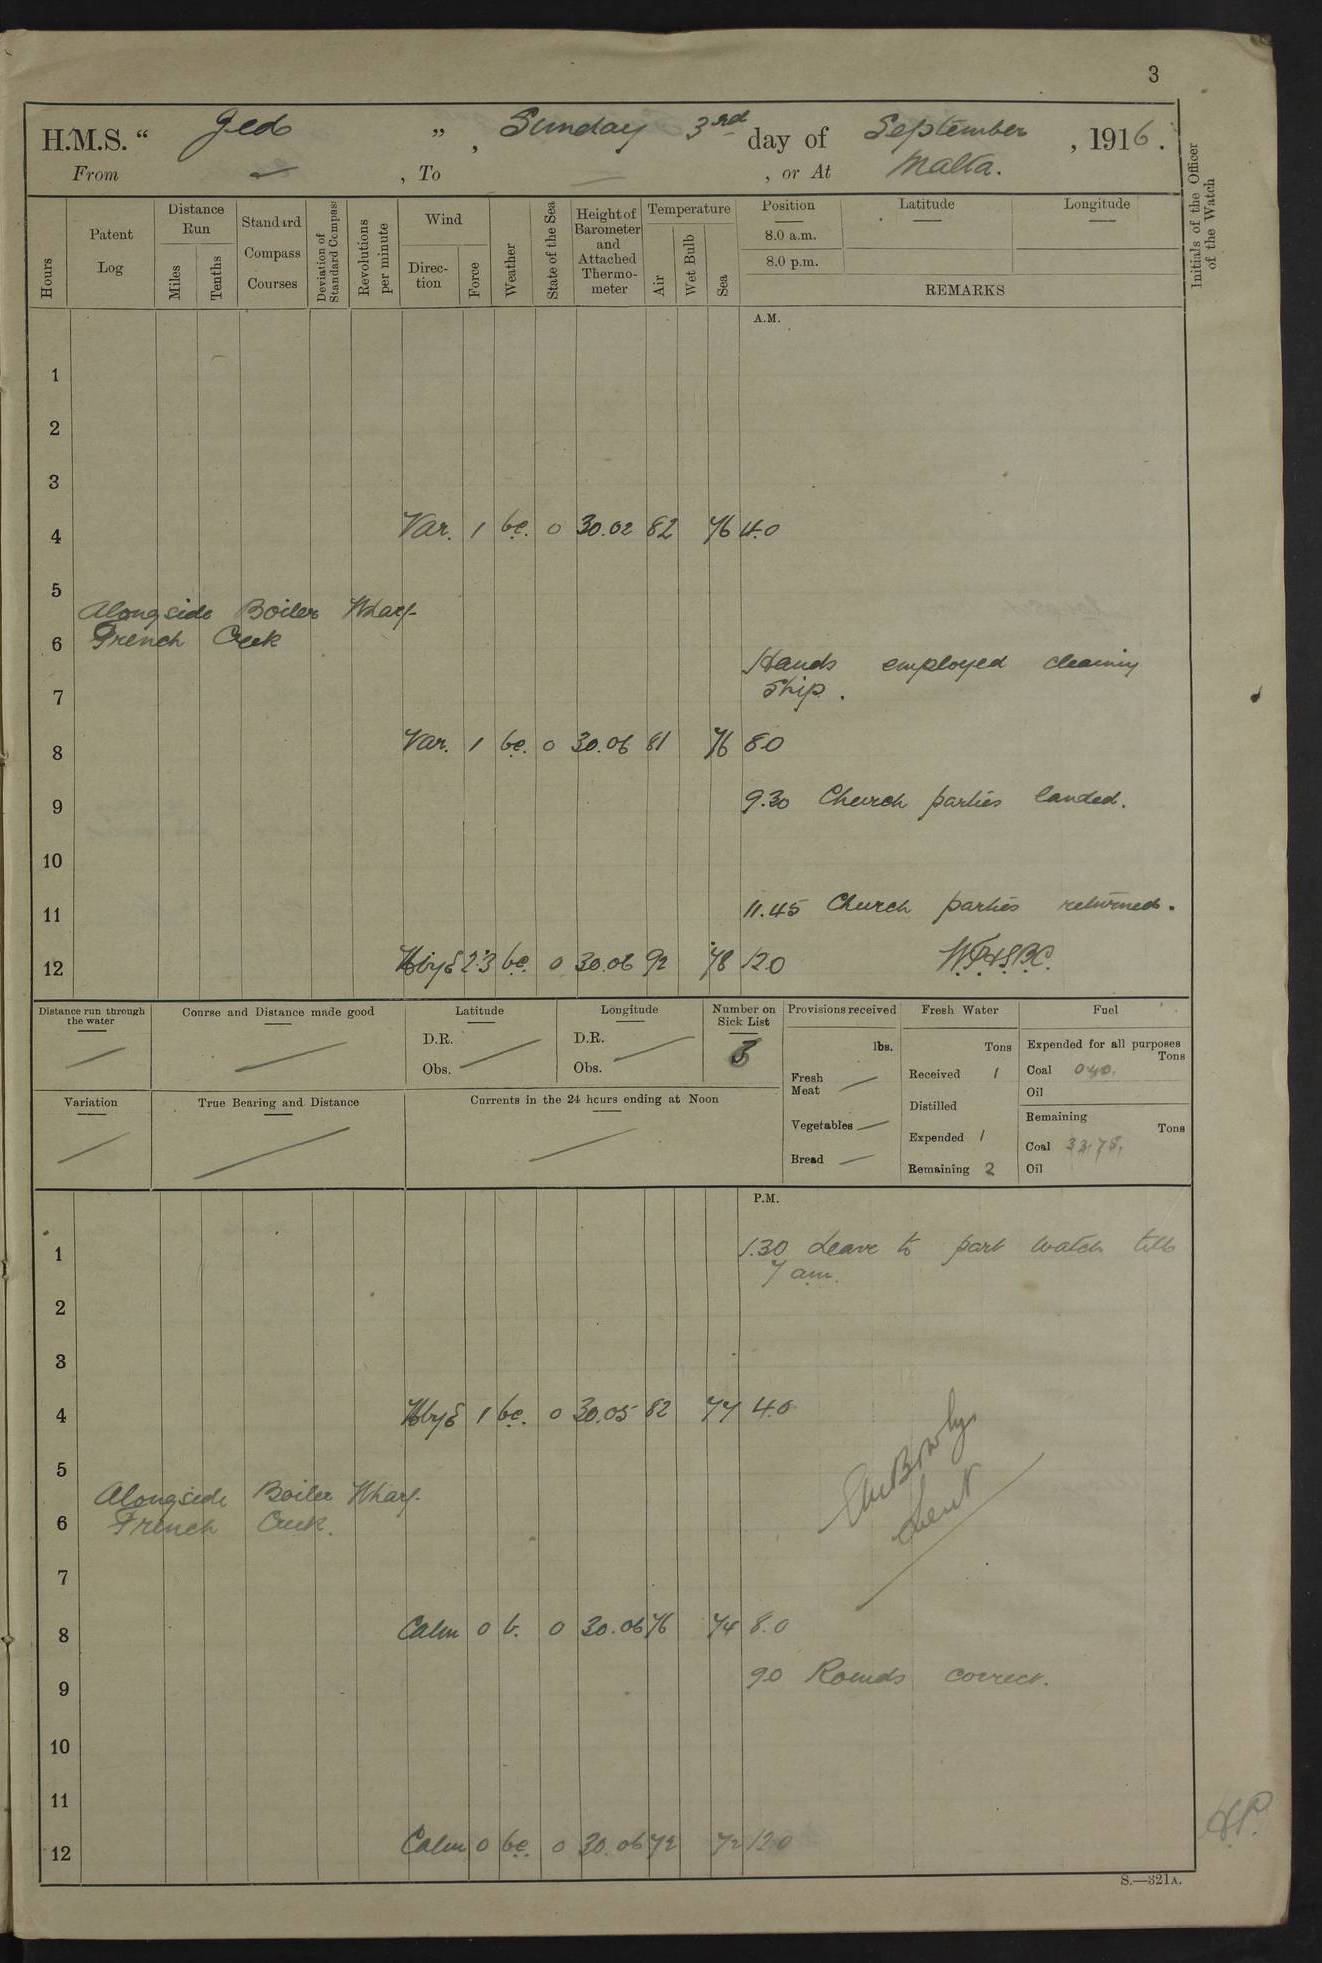 3
H.M.S. " Jed ", Sunday 3rd day of September, 1916.
From — , To — , or At Malta.
Hours
Patent Log
Distance Run
Miles
Tenths
Standard Compass Courses
Deviation of Standard Compass
Revolutions per minute
Wind
Direction
Force
Weather
State of the Sea
Height of Barometer and Attached Thermometer
Temperature
Air
Wet Bulb
Sea
Position
8.0 a.m.
8.0 p.m.
Latitude
Longitude
REMARKS
Initials of the Officer of the Watch
A.M.
1
2
3
4 Var. 1 bc. 0 30.02 82 76 4.0
5
Alongside Boiler Wharf
6 French Creek
Hands employed cleaning
7 Ship.
8 Var. 1 bc. 0 30.06 81 76 8.0
9 9.30 Church parties landed.
10
11 11.45 Church parties returned.
12 NbyE 2.3 bc. 0 30.06 92 78 12.0
Distance run through the water
Course and Distance made good
Latitude
D.R.
Obs.
Longitude
D.R.
Obs.
Number on Sick List
3
Provisions received
lbs.
Fresh Meat —
Vegetables —
Bread —
Fresh Water
Tons
Received 1
Distilled
Expended 1
Remaining 2
Fuel
Expended for all purposes
Tons
Coal
Oil
Remaining
Tons
Coal
Oil
Variation
True Bearing and Distance
Currents in the 24 hours ending at Noon
P.M.
1 1.30 Leave to part watch till
7 am.
2
3
4 NbyE 1 bc. 0 30.05 82 77 4.0
5
Alongside Boiler Wharf.
6 French Creek.
Lieut
7
8 Calm 0 b. 0 30.06 76 74 8.0
9 9.0 Rounds correct.
10
11
12 Calm 0 bc. 0 30.06 72 72 12.0
S.—321A.